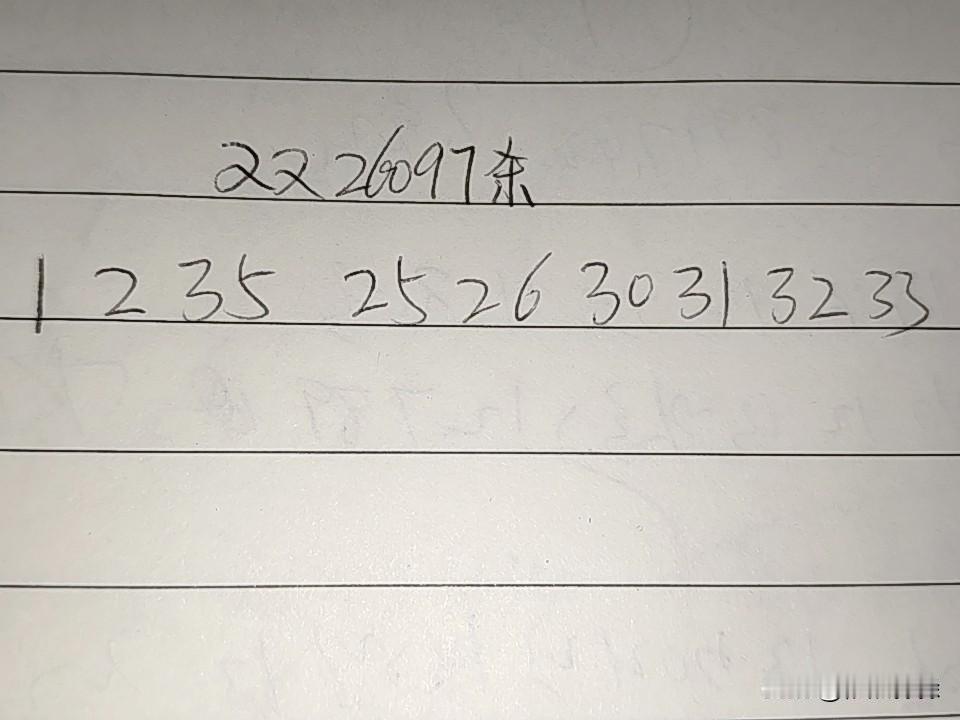 2226097东
1 2 35 25 26 30 31 32 33